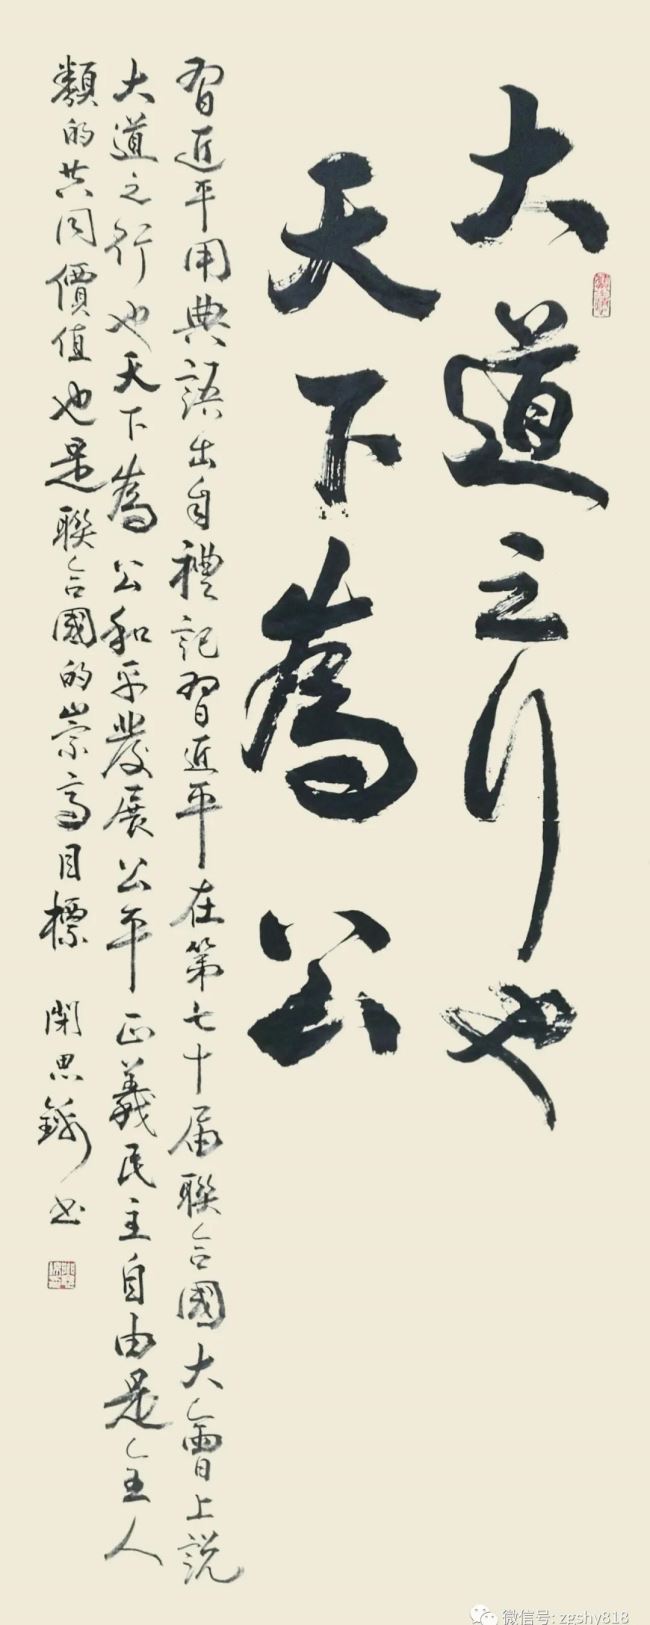 大道之行也
天下為公
習近平用典語出自禮記習近平在第七十屆聯合國大會上説
大道之行也天下為公和平發展公平正義民主自由是全人
類的共同價值也是聯合國的崇高目標 閑思鏘书
微信号: zgshy818